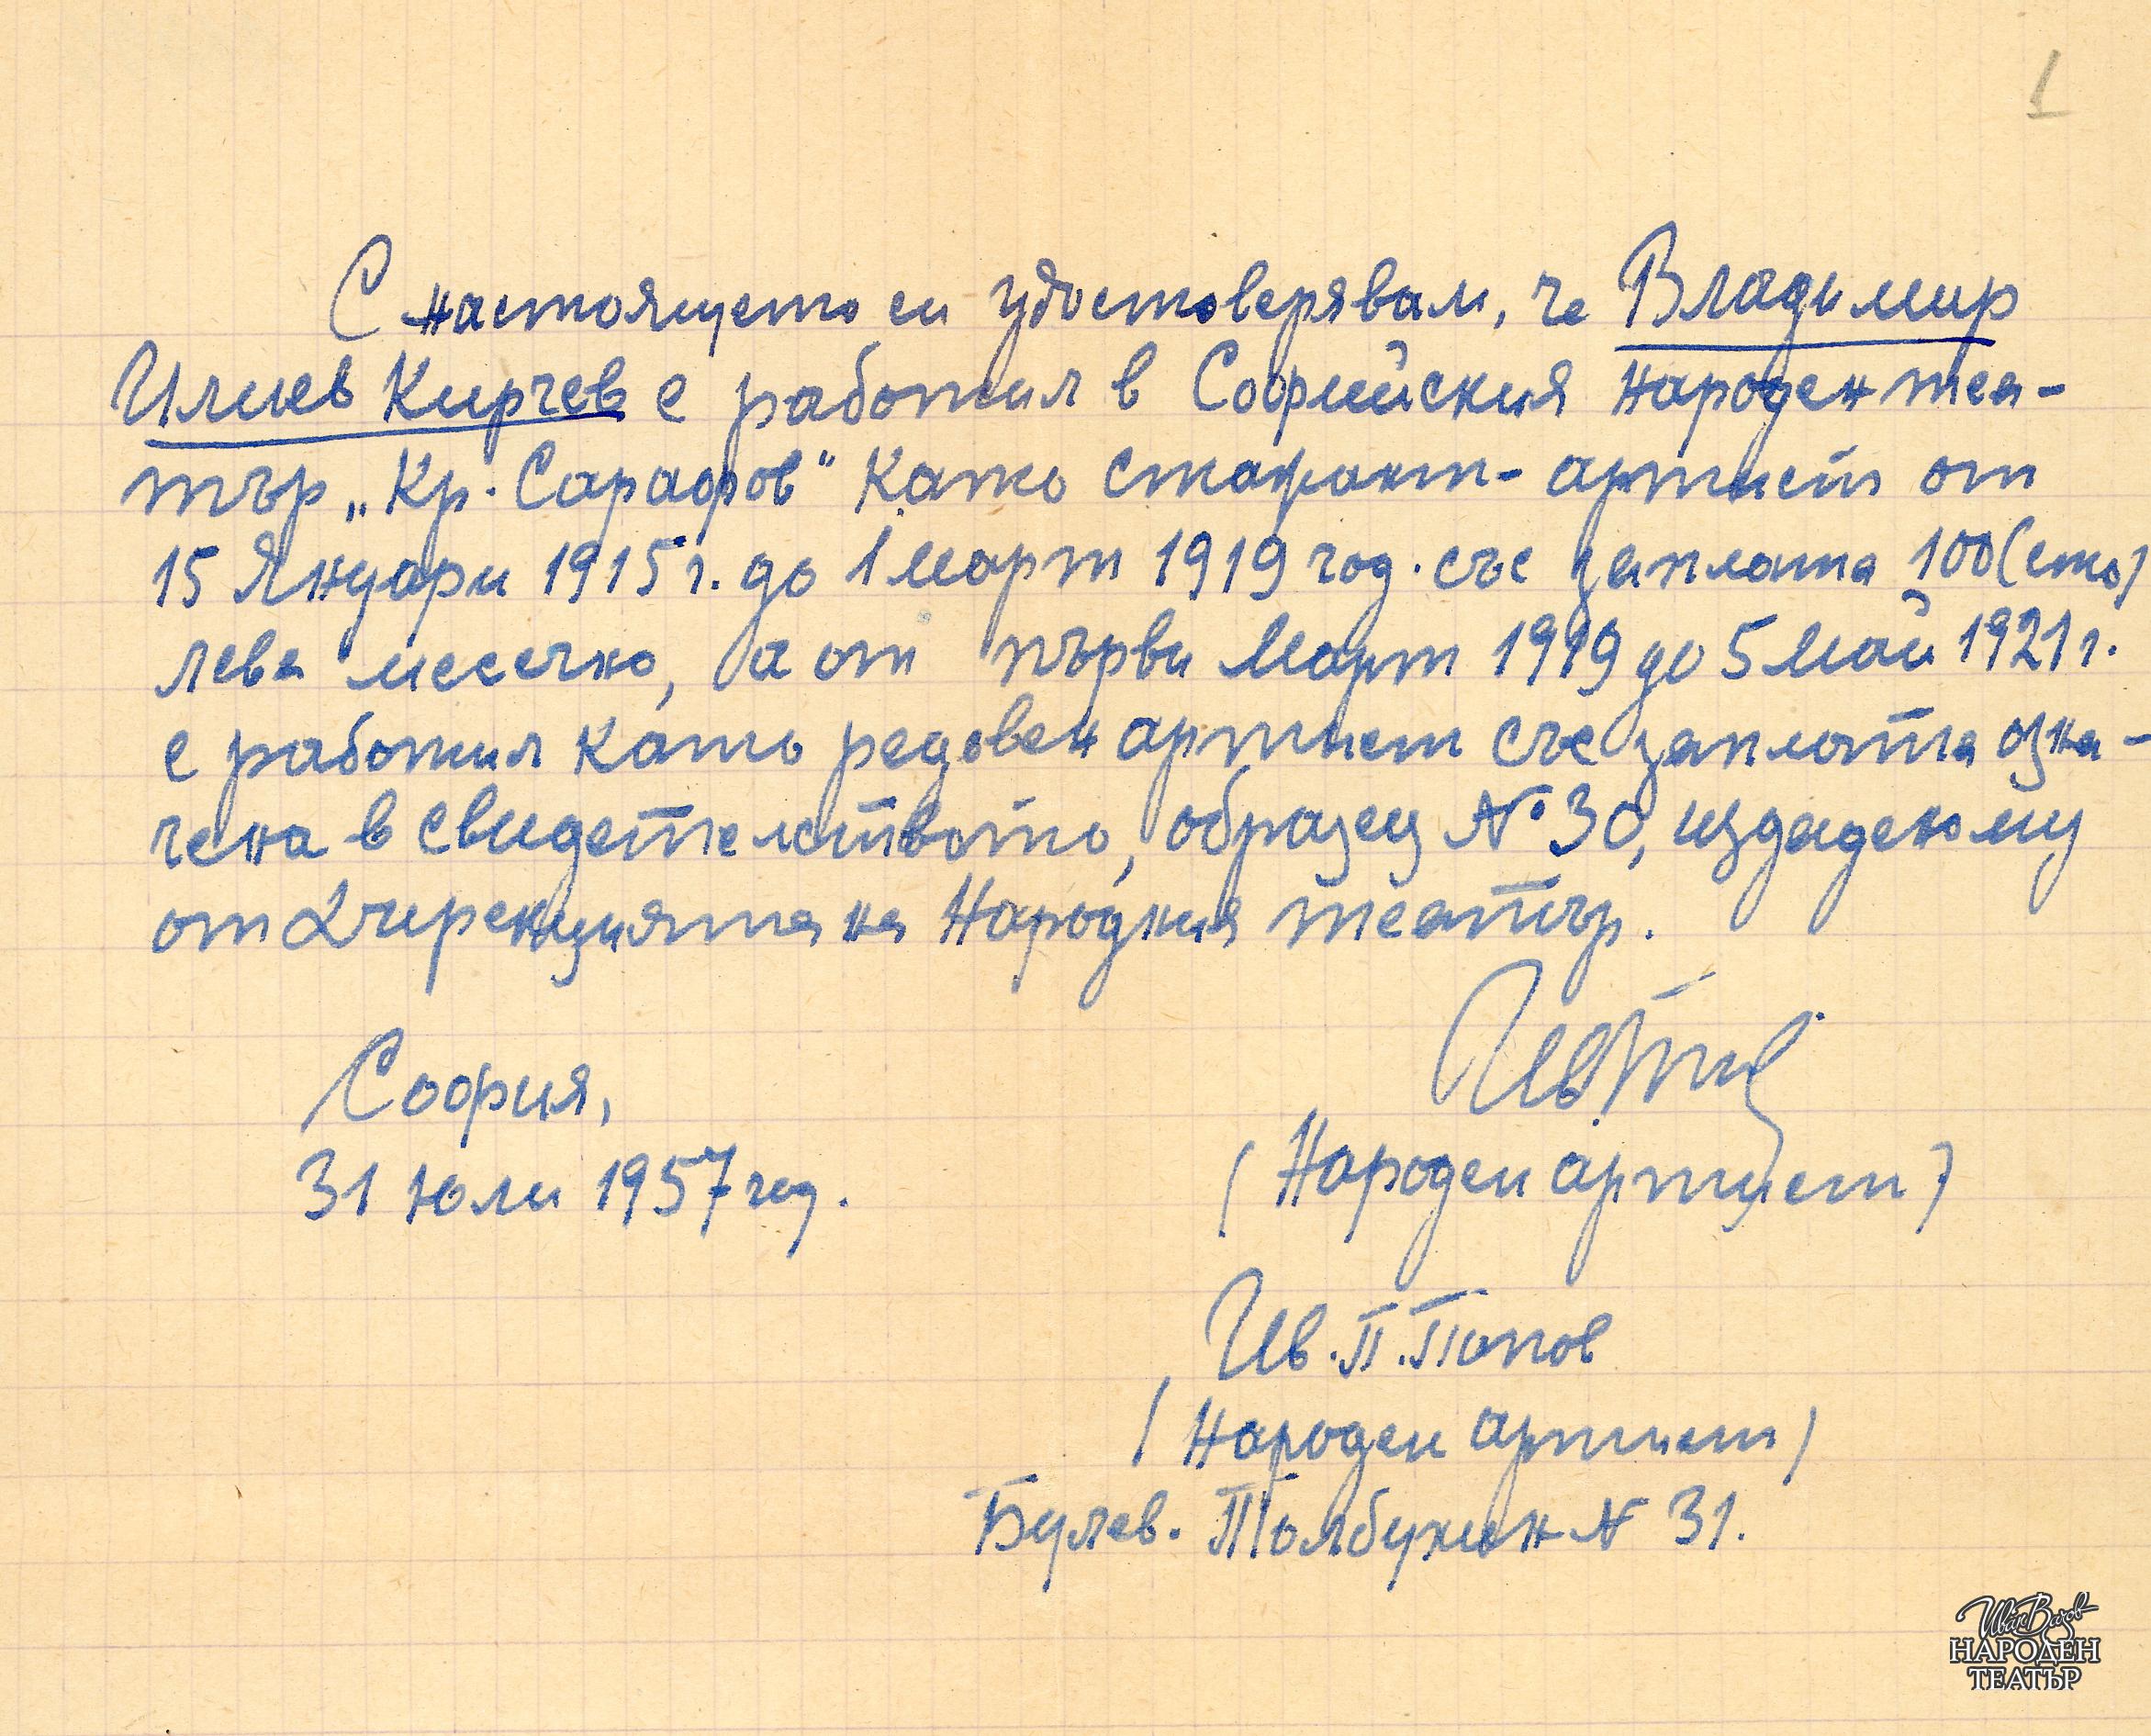 1
С настоящето си удостоверявам, че Владимир
Илиев Кирчев е работил в Софийския народен теа-
тър „Кр. Сарафов" като стажант-артист от
15 Януари 1915 г. до 1 март 1919 год. със заплата 100 (сто)
лева месечно, а от първи Март 1919 до 5 май 1921 г.
е работил като редовен артист със заплата озна-
чена в свидетелството, образец № 30, издадено му
от Дирекцията на Народния театър.
София,
31 юли 1957 год.
(Народен артист)
Ив. П. Попов
(Народен артист)
Булев. Толбухин N 31.
Иван Вазов
НАРОДЕН
ТЕАТЪР